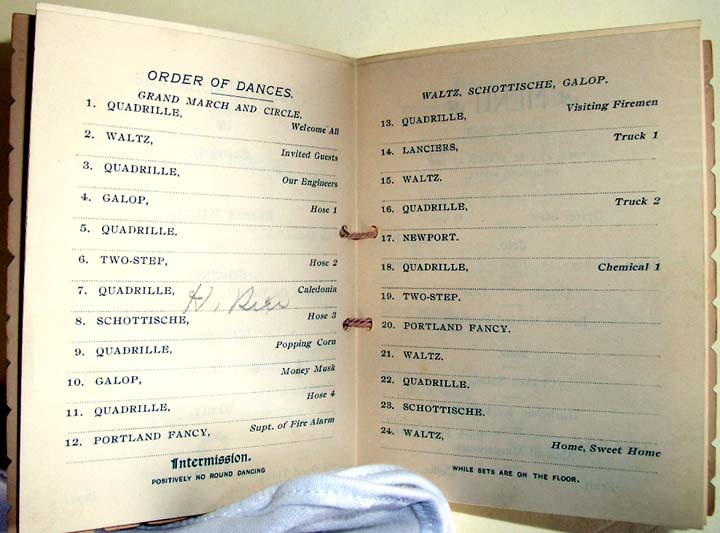 ORDER OF DANCES.
GRAND MARCH AND CIRCLE.
1. QUADRILLE, Welcome All
2. WALTZ, Invited Guests
3. QUADRILLE, Our Engineers
4. GALOP, Hose 1
5. QUADRILLE.
6. TWO-STEP, Hose 2
7. QUADRILLE, H. Caledonia
8. SCHOTTISCHE, Hose 3
9. QUADRILLE, Popping Corn
10. GALOP, Money Musk
11. QUADRILLE, Hose 4
12. PORTLAND FANCY, Supt. of Fire Alarm
Intermission.
POSITIVELY NO ROUND DANCING
WALTZ, SCHOTTISCHE, GALOP.
13. QUADRILLE, Visiting Firemen
14. LANCIERS, Truck 1
15. WALTZ.
16. QUADRILLE, Truck 2
17. NEWPORT.
18. QUADRILLE, Chemical 1
19. TWO-STEP.
20. PORTLAND FANCY.
21. WALTZ.
22. QUADRILLE.
23. SCHOTTISCHE.
24. WALTZ, Home, Sweet Home
WHILE SETS ARE ON THE FLOOR.